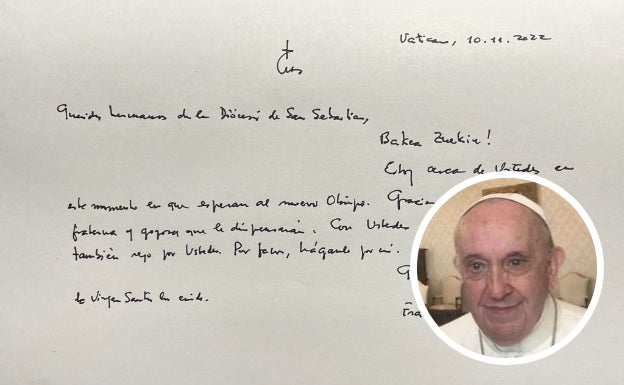 Vatican, 10.11.2022
Queridos hermanos de la Diócesis de San Sebastian,
Bakea Zuekin!
Estoy cerca de Ustedes en
este momento en que esperan al nuevo Obispo. Gracias
fraterna y gozosa que le dispensarán. Con Ustedes
también rezo por Ustedes. Por favor, háganlo por mí.
la Virgen Santa los cuide.